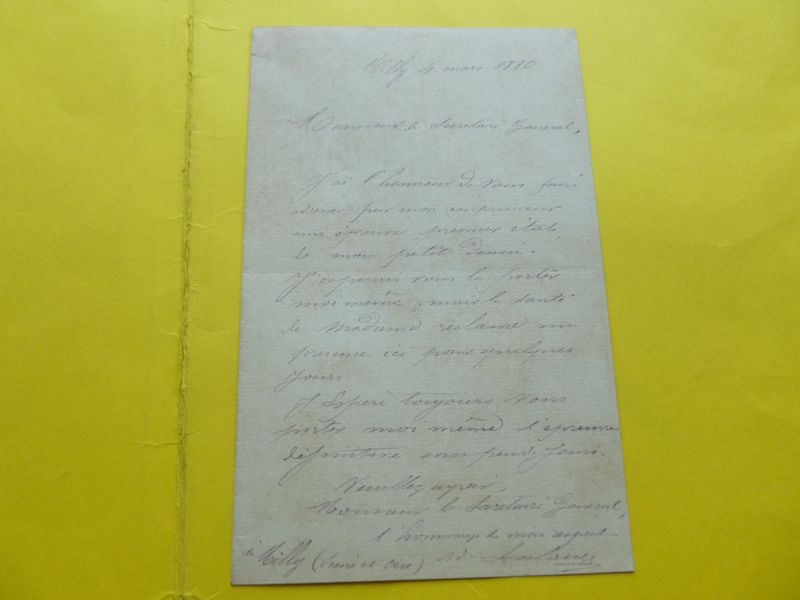 Milly 4 mars 1880
Monsieur le Secretaire General,
J'ai l'honneur de vous faire
adresser par mon imprimeur
une épreuve, premier état,
de mon petit dessin.
J'esperais vous la porter
moi même, mais la santé
de Madame reclame ma
presence ici pour quelques
jours.
J'espere toujours vous
porter moi même l'épreuve
définitive sous peu de jours.
Veuillez agréer,
Monsieur le Secretaire General,
l'hommage de mon respect
à Milly (Seine et Oise) Ad.